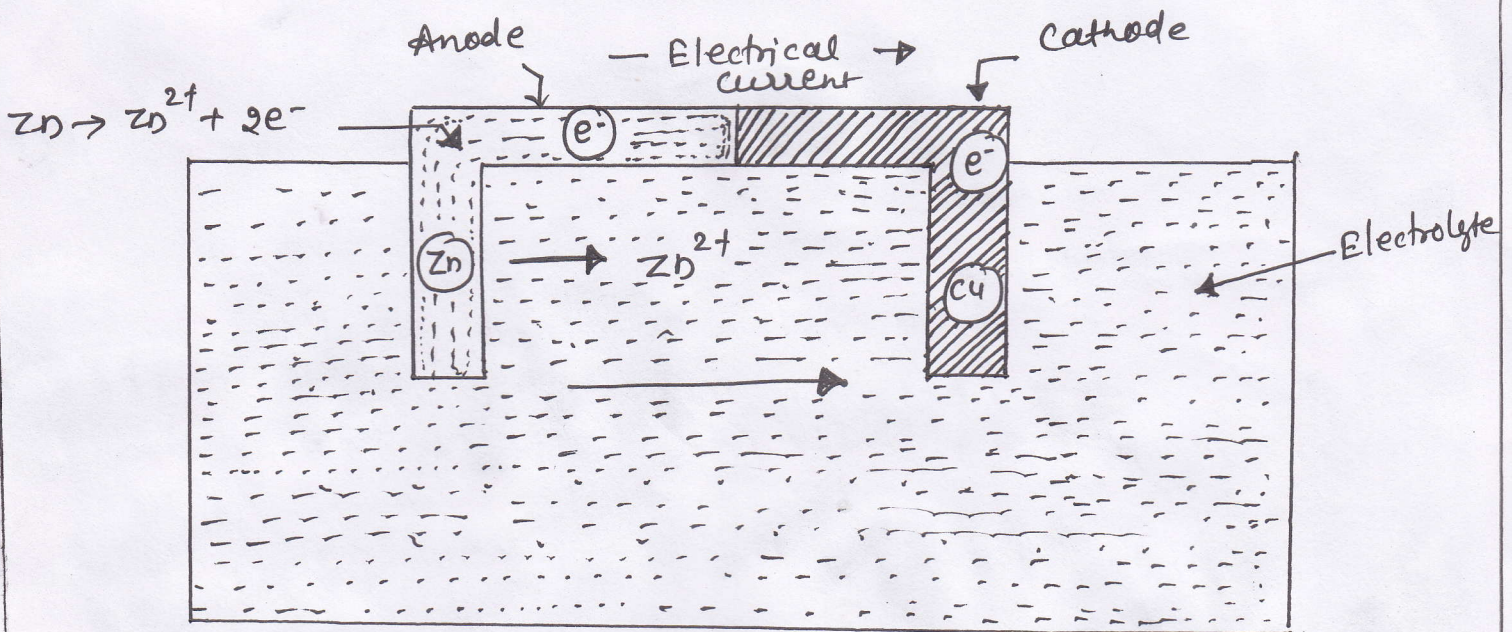 Anode
— Electrical →
current
Cathode
Zn → Zn²⁺ + 2e⁻
e⁻
e⁻
Zn
→ Zn²⁺
Cu
Electrolyte